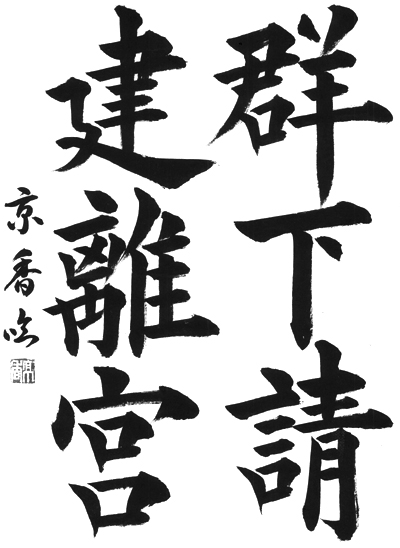 群下請
建離宮
京香